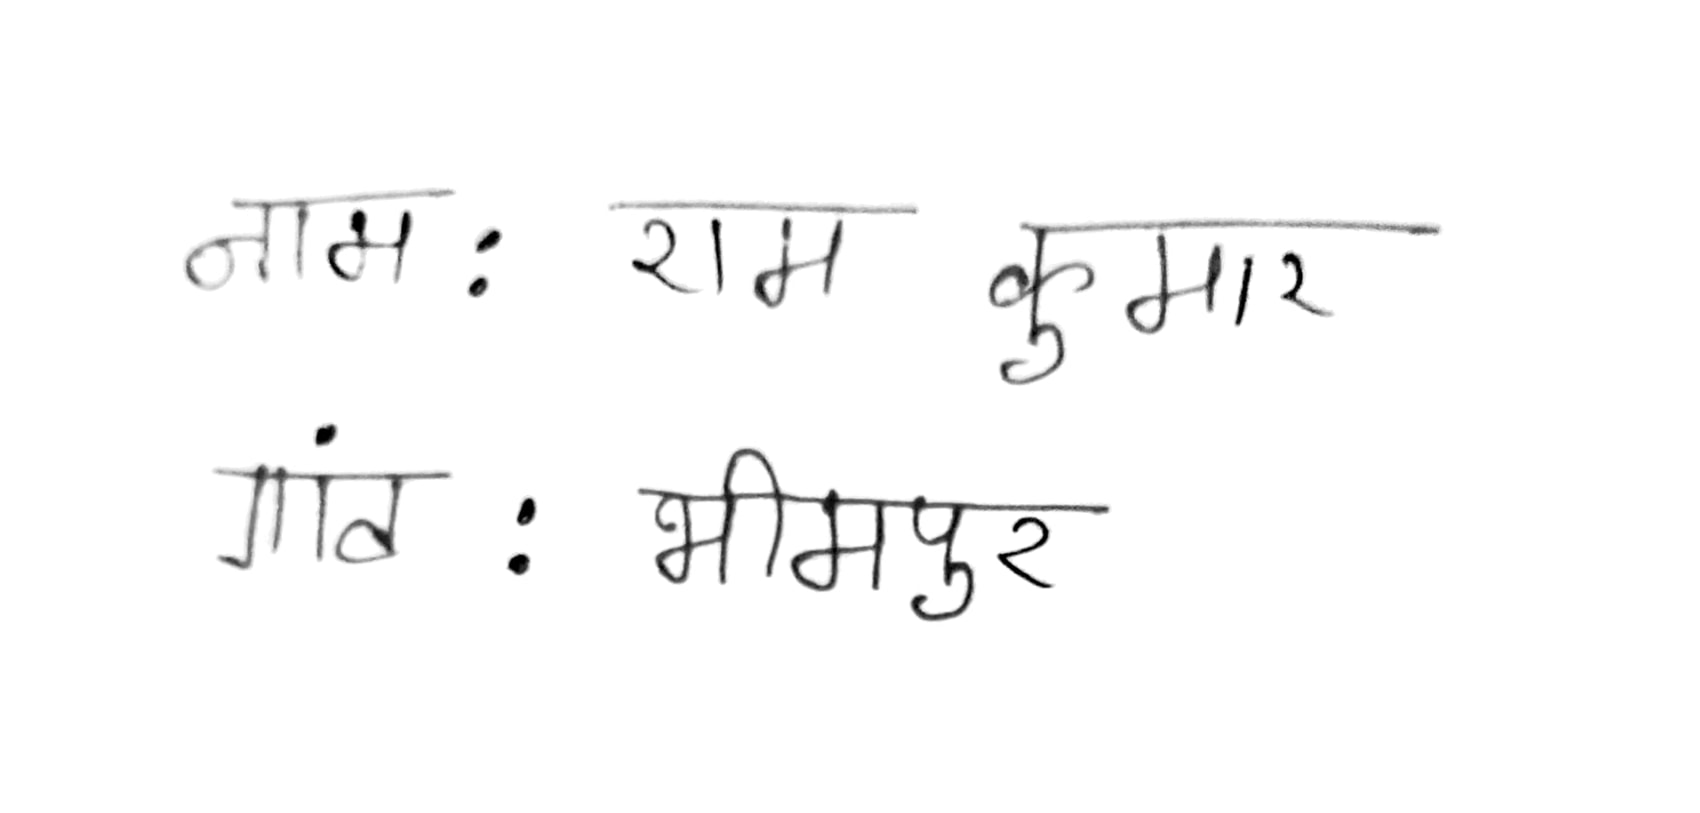 नाम : राम कुमार
गांव : भीमपुर